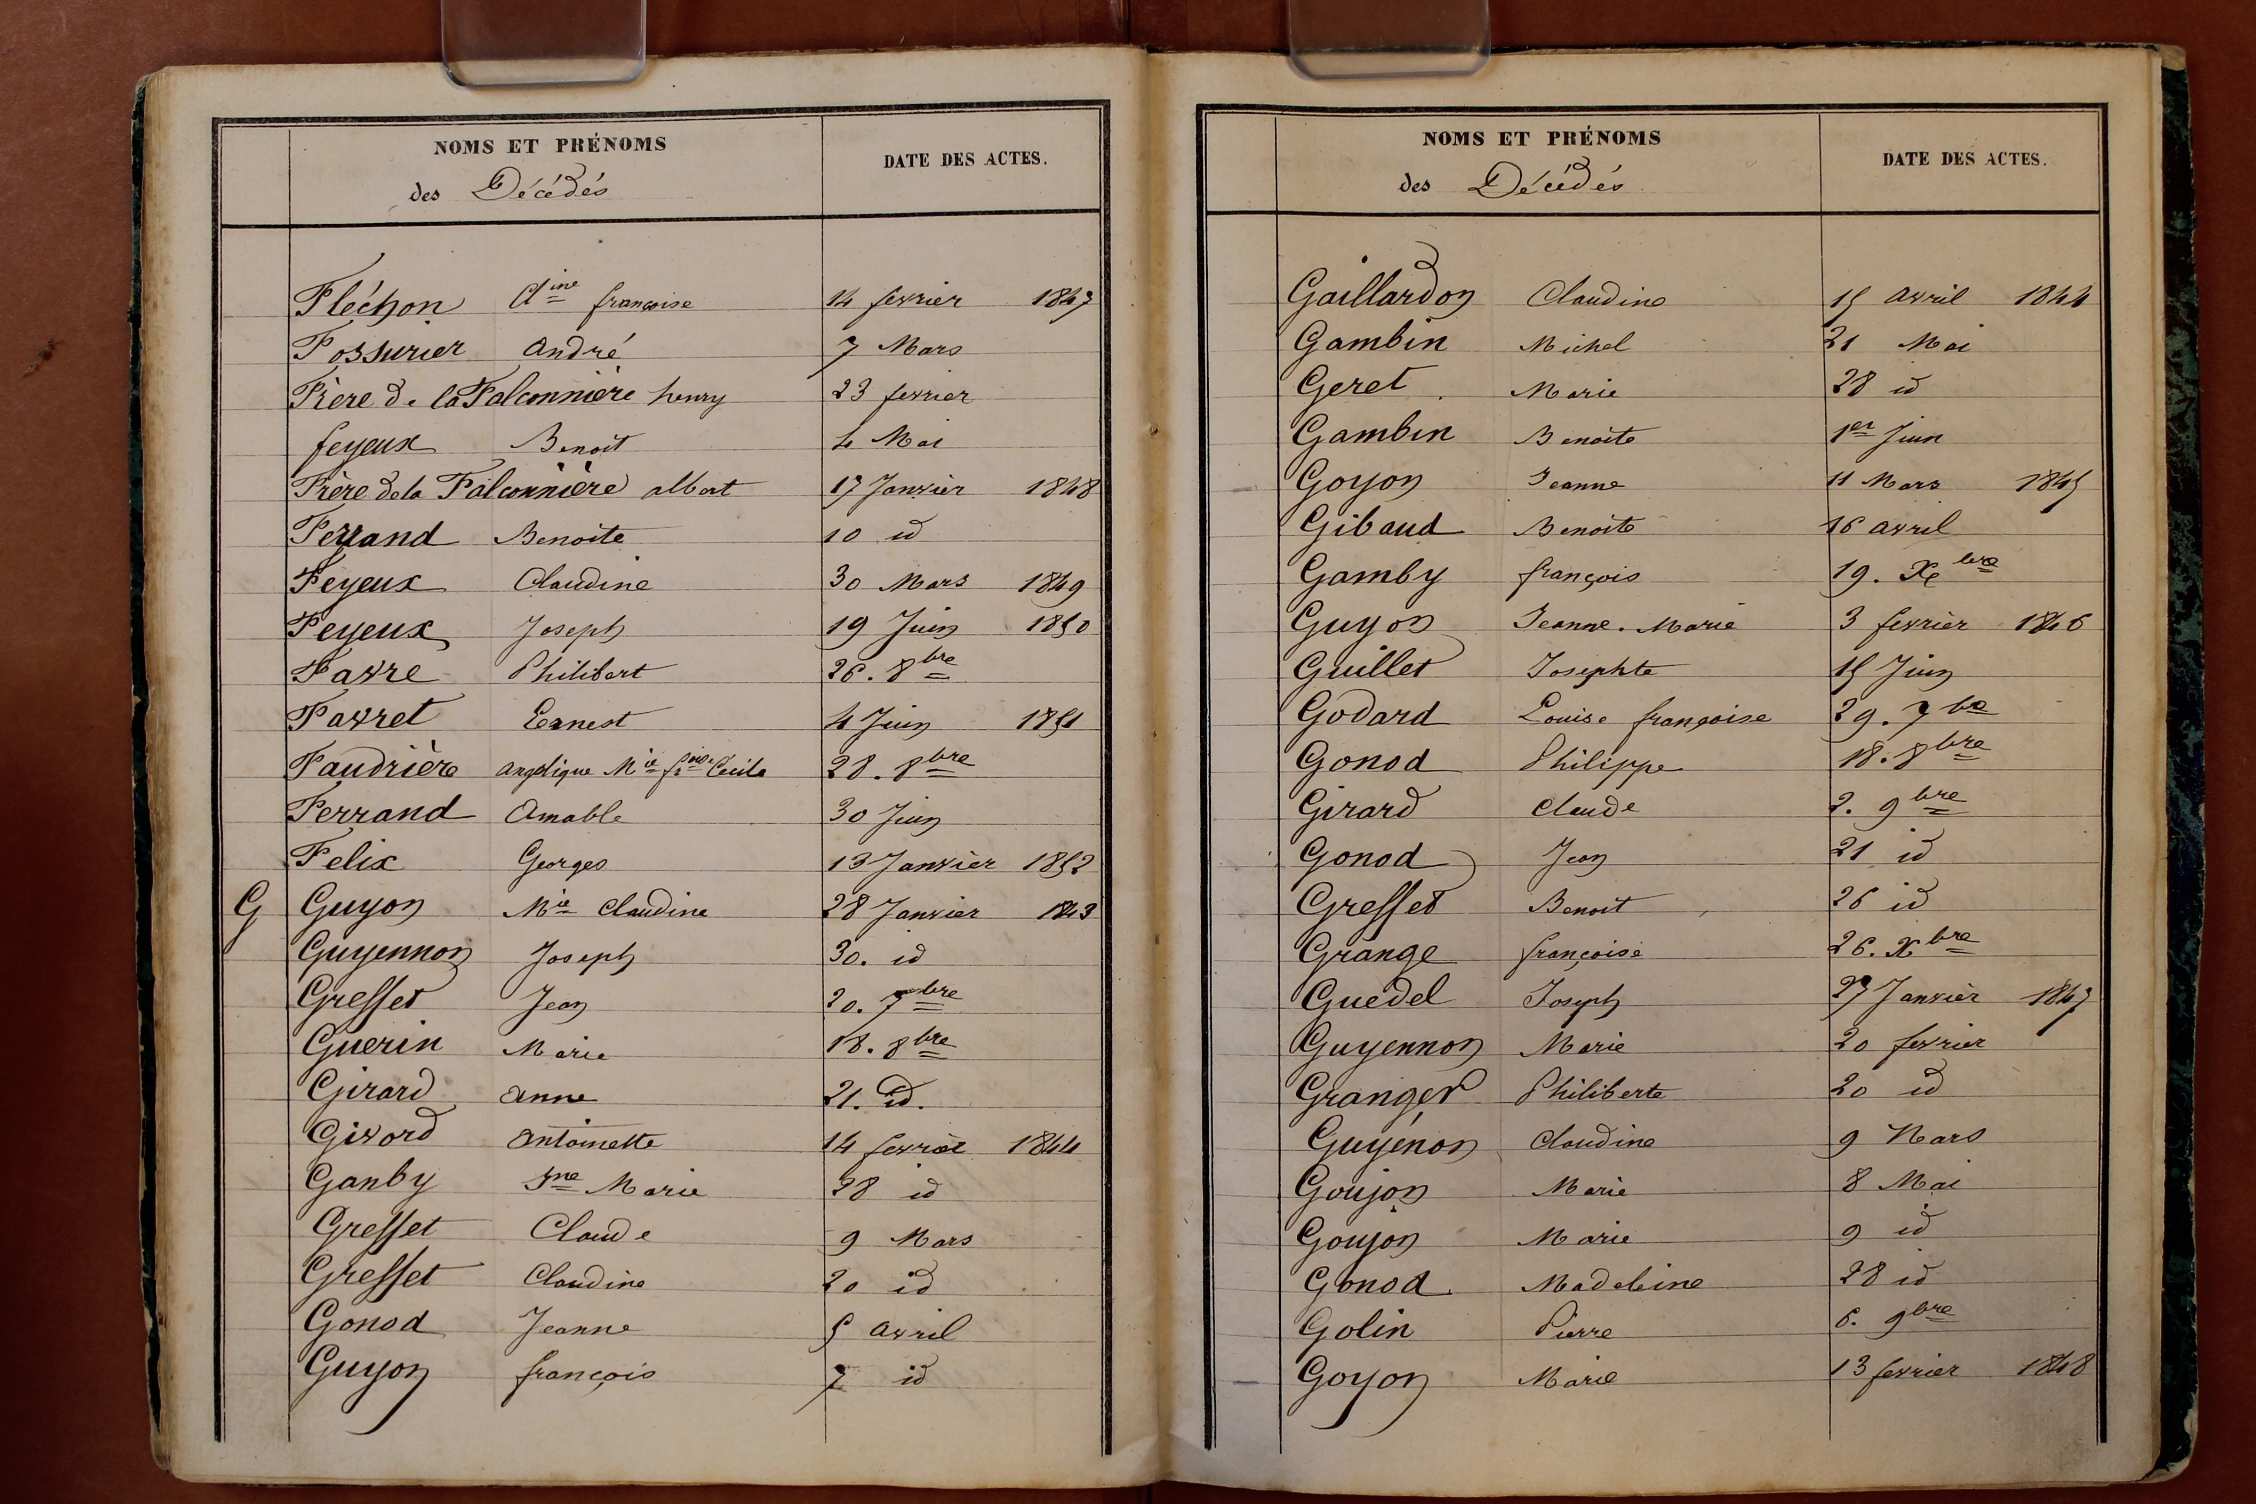 NOMS ET PRÉNOMS
des Décédés
DATE DES ACTES.
Fléchon Cl ine françoise 14 fevrier 1847
Fossurier André 7 Mars
Frère de la Falconnière henry 23 fevrier
feyeux Benoit 4 Mai
Frère de la Falconnière albert 17 Janvier 1848
Ferrand Benoite 10 id
Feyeux Claudine 30 Mars 1849
Feyeux Joseph 19 Juin 1850
Favre Philibert 26. 8bre
Favret Ernest 4 Juin 1851
Faudrière angelique Mie fse Cecile 28. 8bre
Ferrand Amable 30 Juin
Felix Georges 13 Janvier 1852
G Guyon Mie Claudine 28 Janvier 1843
Guyennon Joseph 30. id
Gresset Jean 20. 7bre
Guerin Marie 18. 8bre
Girard anne 21. id.
Givord antoinette 14 fevrier 1844
Ganby Jne Marie 28 id
Gresset Claude 9 Mars
Gresset Claudine 20 id
Gonod Jeanne 5 avril
Guyon françois 7 id
NOMS ET PRÉNOMS
des Décédés
DATE DES ACTES.
Gaillardon Claudine 15 avril 1844
Gambin Michel 21 Mai
Geret Marie 28 id
Gambin Benoite 1er Juin
Goyon Jeanne 11 Mars 1845
Gibaud Benoite 16 avril
Gamby françois 19. Xbre
Guyon Jeanne. Marie 3 fevrier 1846
Guillet Josephte 15 Juin
Godard Louise françoise 29. 7bre
Gonod Philippe 18. 8bre
Girard Claude 2. 9bre
Gonod Jean 21 id
Gresset Benoit 26 id
Grange françoise 26. Xbre
Guedel Joseph 27 Janvier 1847
Guyennon Marie 20 fevrier
Granger Philiberte 20 id
Guyénon Claudine 9 Mars
Goujon Marie 8 Mai
Goujon Marie 9 id
Gonod Madeleine 28 id
Golin Pierre 6. 9bre
Goyon Marie 13 fevrier 1848